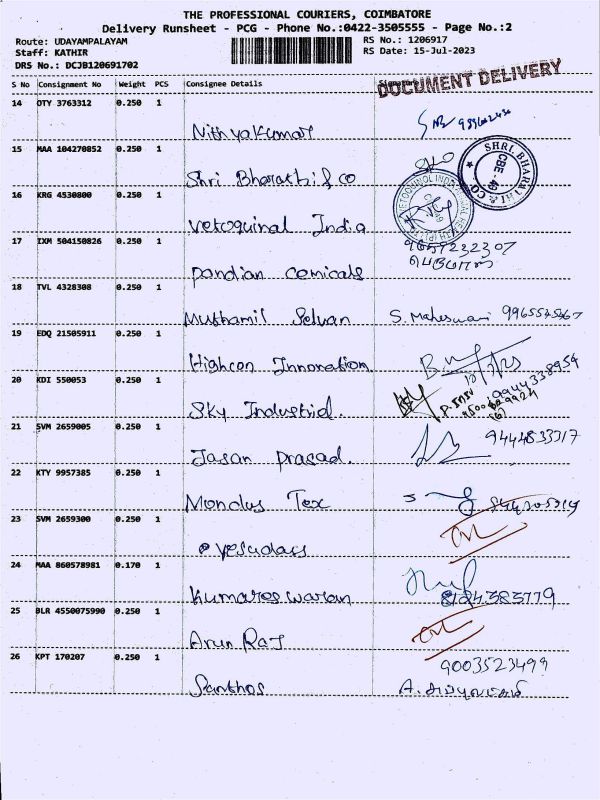 THE PROFESSIONAL COURIERS, COIMBATORE
Delivery Runsheet - PCG - Phone No.:0422-3505555 - Page No.:2
Route: UDAYAMPALAYAM
RS No.: 1206917
Staff: KATHIR
RS Date: 15-Jul-2023
DRS No.: DCJB120691702
DOCUMENT DELIVERY
S No Consignment No Weight PCS Consignee Details
14 OTY 3763312 0.250 1
Nithyakumar
15 MAA 104270852 0.250 1
SHRI BHARATHI & CO
CBE
Shri Bharathi & co
16 KRG 4530800 0.250 1
Vetoquinal India
17 IXM 504150826 0.250 1
9657232307
pandian cemicals
18 TVL 4328308 0.250 1
Muthamil Selvan S. Maheswari
19 EDQ 21505911 0.250 1
Highcon Innovation
20 KDI 550053 0.250 1
9944338954
Sky Industrid.
21 SVM 2659005 0.250 1
9444833317
Jasan prasad.
22 KTY 9957385 0.250 1
Mondus Tex
23 SVM 2659300 0.250 1
yesudass
24 MAA 860578981 0.170 1
Kumareswaran 8124383779
25 BLR 4550075990 0.250 1
Arun Raj
26 KPT 170207 0.250 1
9003523499
Santhos